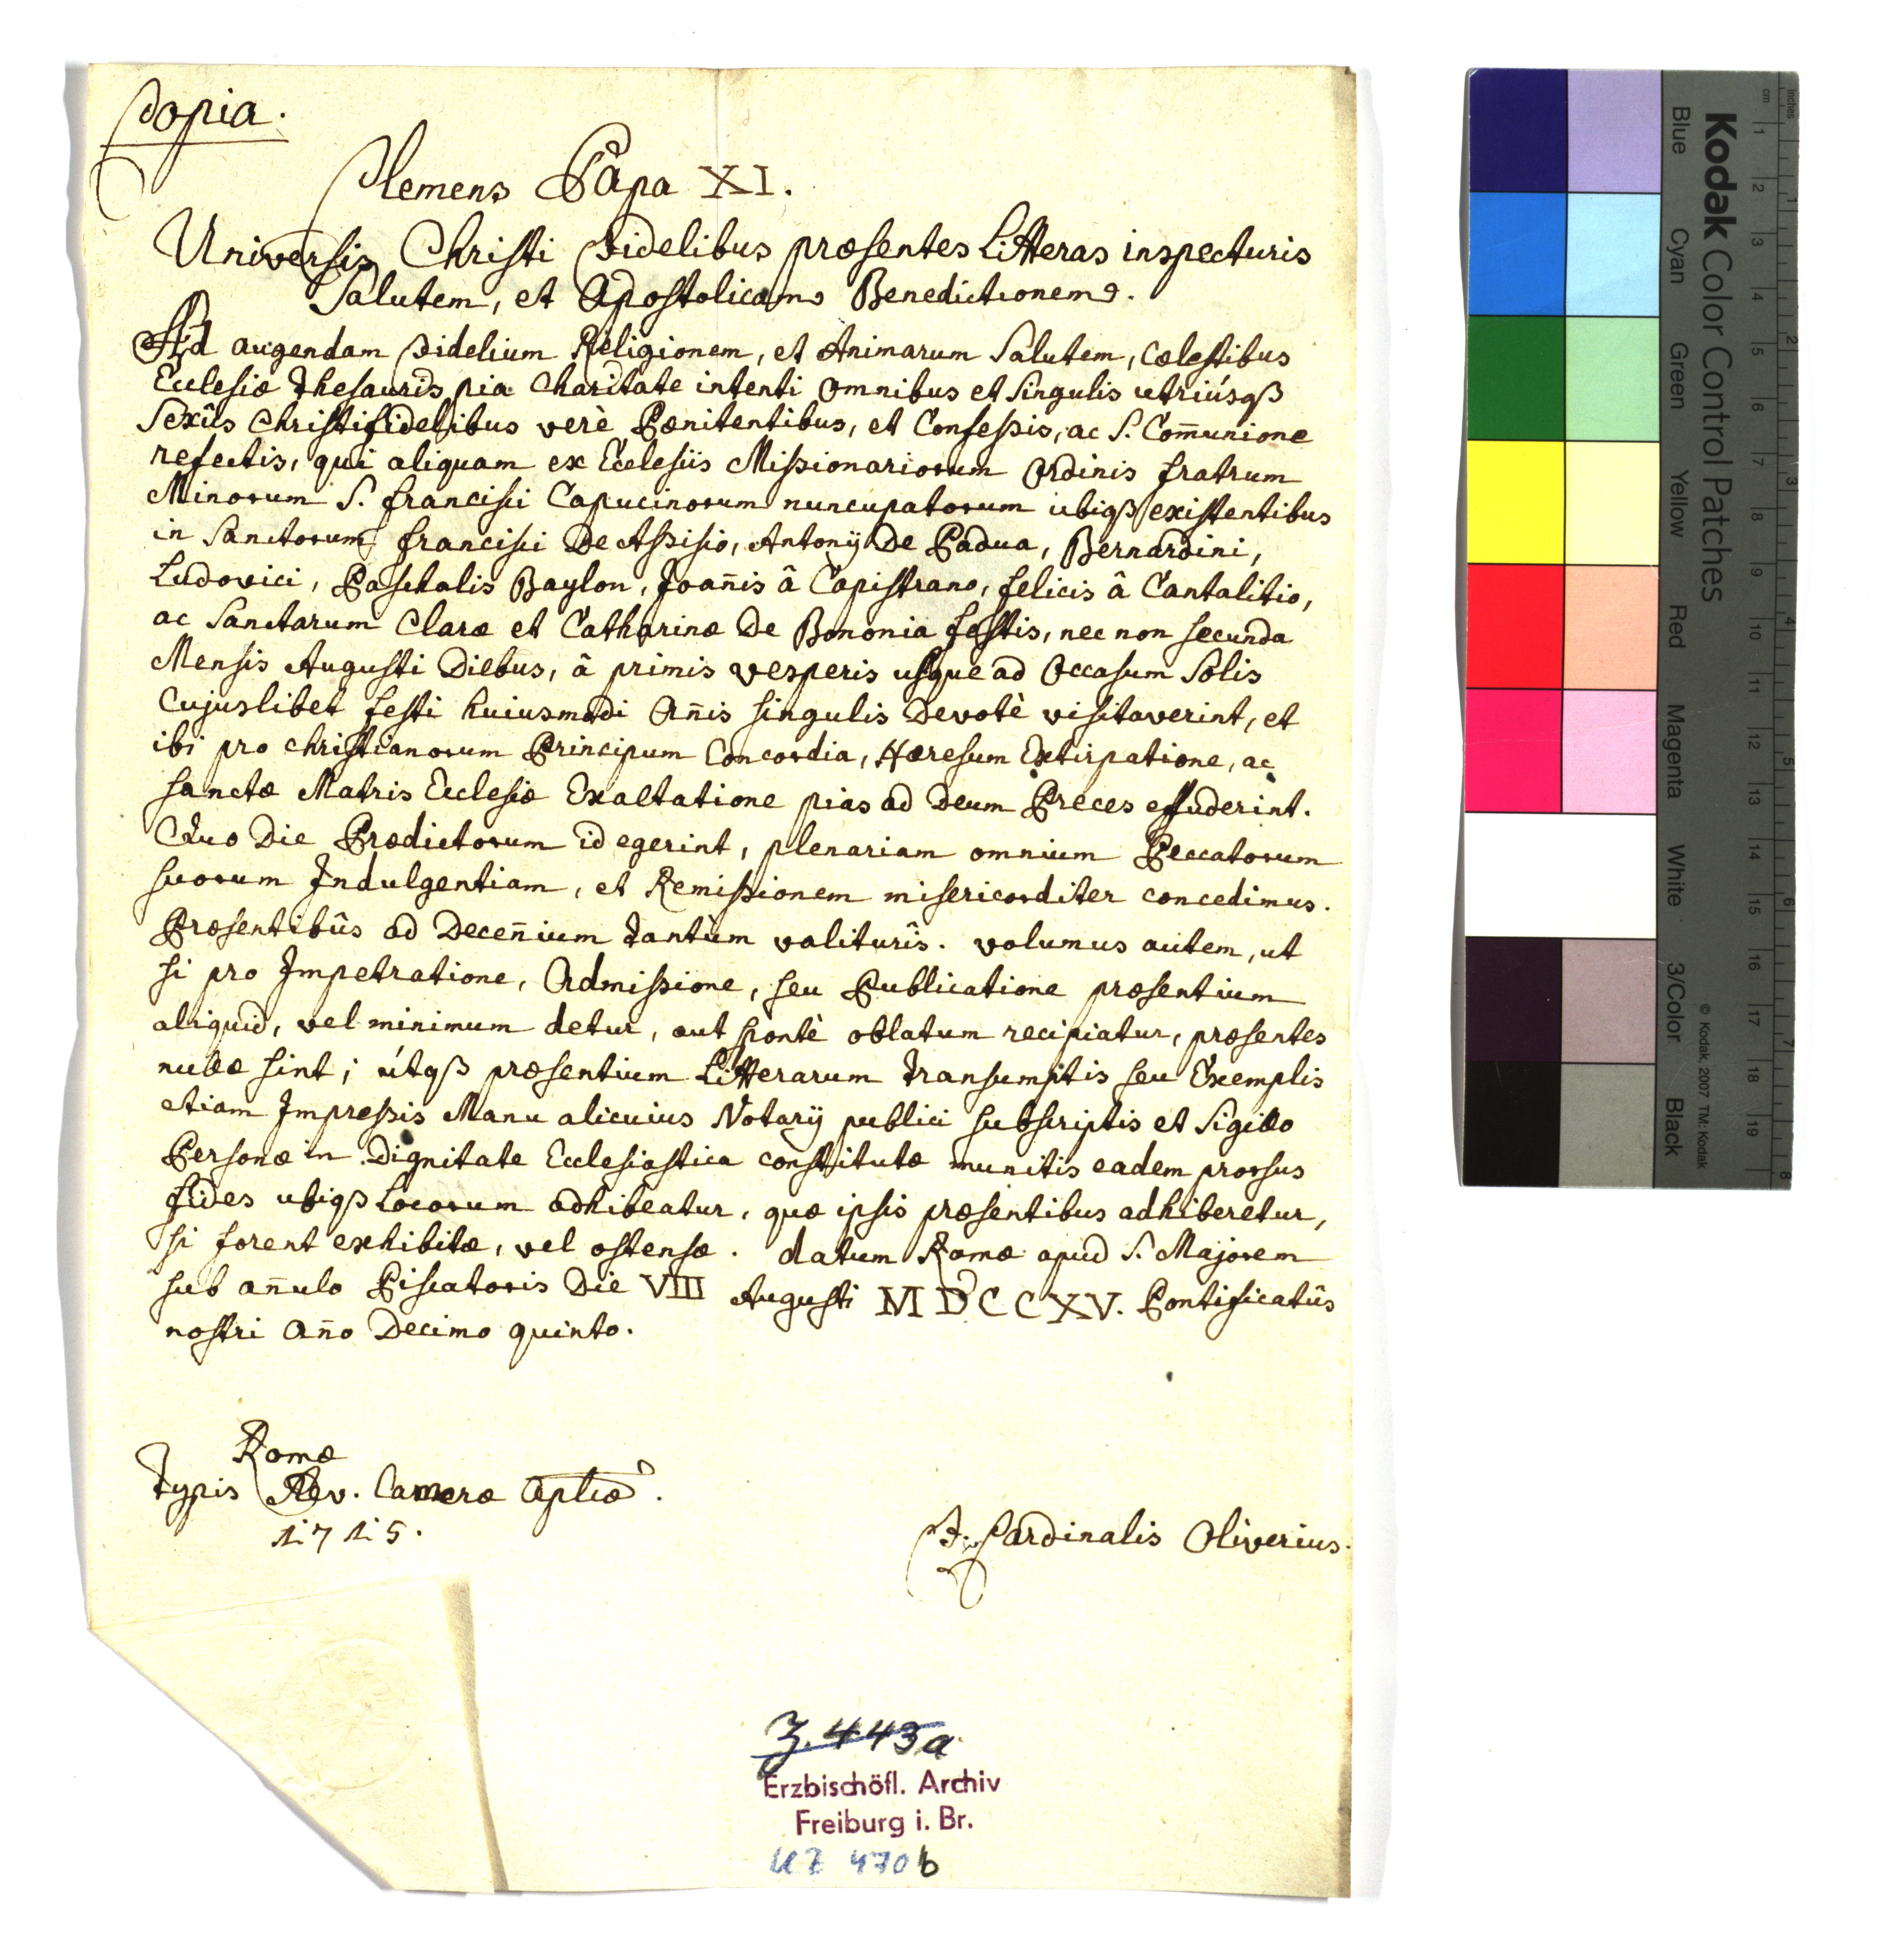 Copia.
Clemens Papa XI.
Universis Christi Fidelibus præsentes Litteras inspecturis
Salutem, et Apostolicam Benedictionem.
Ad augendam Fidelium Religionem, et Animarum Salutem, Cælestibus
Ecclesiæ Thesauris pia Charitate intenti Omnibus et Singulis utriúsqß
Sexûs Christifidelibus verè Pænitentibus, et Confeßis, ac S. Com̄unione
refectis, qui aliquam ex Ecclesiis Mißionariorum Ordinis fratrum
Minorum S. francisci Capucinorum nuncupatorum ubiqß existentibus
in Sanctorum francisci De Aßisio, Antonij De Padua, Bernardini,
Ludovici, Paschalis Baylon, Joan̄is â Capistrano, felicis â Cantalitio,
ac Sanctarum Claræ et Catharinæ De Bononia festis, nec non secunda
Mensis Augusti Diebus, â primis vesperis usque ad Occasum Solis
Cujuslibet festi huiusmodi An̄is singulis Devotè visitaverint, et
ibi pro christianorum Principum Concordia, Hæresum Extirpatione, ac
sanctæ Matris Ecclesiæ Exaltatione pias ad Deum Preces effuderint.
Quo Die Prædictorum id egerint, plenariam omnium Peccatorum
suorum Indulgentiam, et Remißionem misericorditer concedimus.
Præsentibûs ad Decen̄ium tantùm valiturîs. volumus autem, ut
si pro Impetratione, Admißione, seu Publicatione præsentium
aliquid, vel minimum detur, aut spontè oblatum recipiatur, præsentes
nullæ sint; útqß præsentium Litterarum Transumptis seu Exemplis
etiam Impreßis Manu alicuius Notarij publici subscriptis et Sigillo
Personæ in Dignitate Ecclesiastica constitutæ munitis eadem prorsus
fides ubiqß Locorum adhibeatur, quæ ipsis præsentibus adhiberetur,
si forent exhibitæ, vel ostensæ. datum Romæ apud S. Majorem
sub an̄ulo Piscatoris Die VIII Augusti MDCCXV. Pontificatûs
nostri An̄o Decimo quinto.
Romæ
Typis Rev. Cameræ Aplicæ.
1715.
F. Cardinalis Oliverius.
Z. 443a
Erzbischöfl. Archiv
Freiburg i. Br.
UZ 470b
Kodak Color Control Patches
Blue Cyan Green Yellow Red Magenta White 3/Color Black
© Kodak, 2007 TM: Kodak
inches 1 2 3 4 5 6 7 8
cm 1 2 3 4 5 6 7 8 9 10 11 12 13 14 15 16 17 18 19